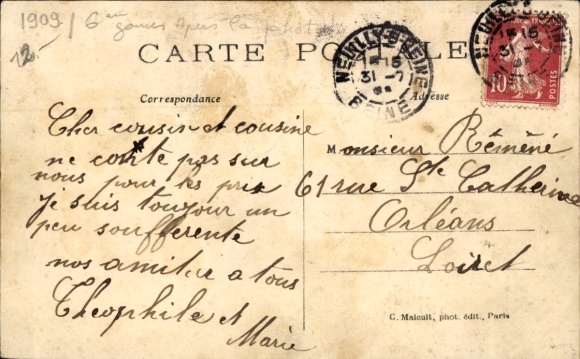 1909 / 6
12.-
CARTE POSTALE
NEUILLY-S-SEINE
15
31 -7
SEINE
NEUILLY-S-SEINE
15
31 -7
10
POSTES
Correspondance
Adresse
Cher cousin et cousine
ne conte pas sur
nous pour les prix
je suis toujour un
peu soufferente
nos amitier a tous
Theophile et
Marie
Monsieur Réméné
61 rue Ste Catherine
Orléans
Loiret
C. Malcuit, phot. édit., Paris